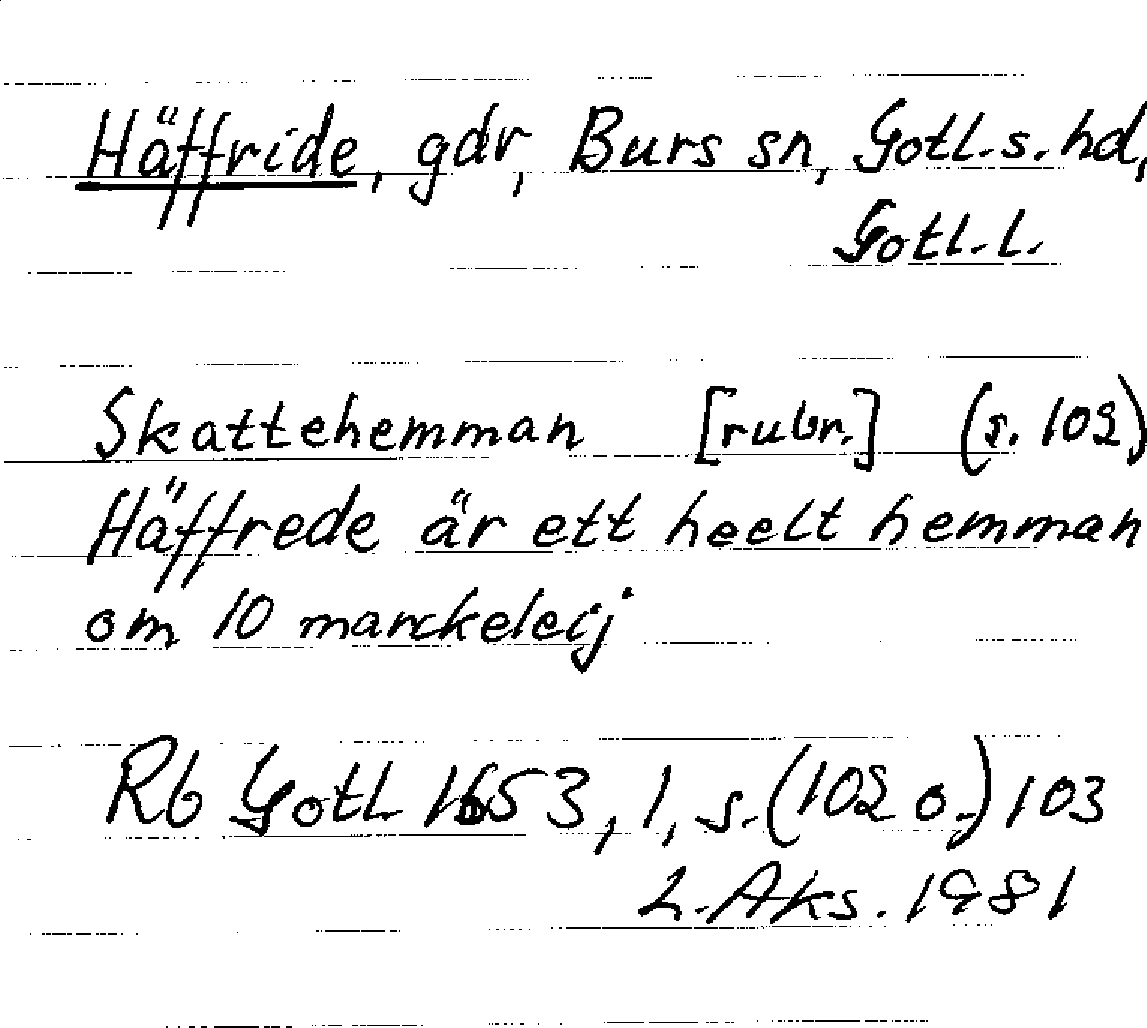 Häffride, gdr, Burs sn, Gotl.s. hd,
Gotl. l.
Skattehemman [rubr.] (s. 102)
Häffrede är ett heelt hemman
om 10 marckeleij
Rb Gotl 1653, 1, s. (102 o.) 103
L. Aks. 1981